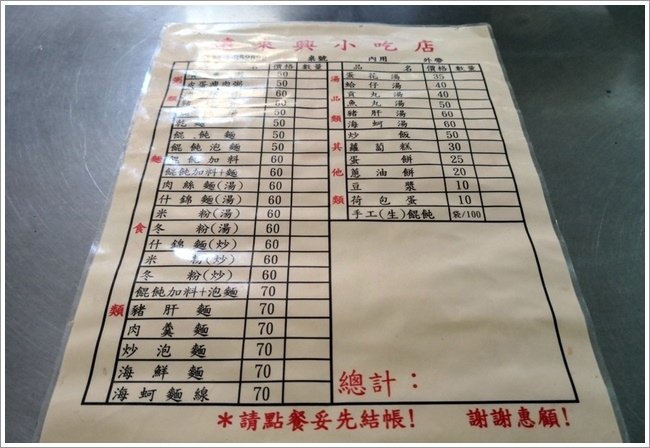 遠東興小吃店
桌號 內用 外帶
價格 數量
粥類
50
皮蛋瘦肉粥 50
50
60
50
乾麵 50
麵食類
餛飩麵 50
餛飩泡麵 50
餛飩加料 60
餛飩加料+麵 60
肉絲麵(湯) 60
什錦麵(湯) 60
米粉(湯) 60
冬粉(湯) 60
什錦麵(炒) 60
米粉(炒) 60
冬粉(炒) 60
餛飩加料+泡麵 70
豬肝麵 70
肉羹麵 70
炒泡麵 70
海鮮麵 70
海蚵麵線 70
品名 價格 數量
湯品類
蛋花湯 35
蛤仔湯 40
貢丸湯 40
魚丸湯 50
豬肝湯 60
海蚵湯 60
其他類
炒飯 50
蘿蔔糕 30
蛋餅 25
蔥油餅 20
豆漿 10
荷包蛋 10
手工(生)餛飩 袋/100
總計：
*請點餐妥先結帳! 謝謝惠顧!